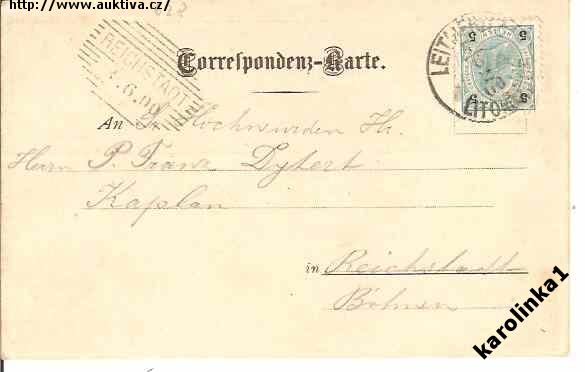 http://www.aukтiva.cz
REICHSTADT
.6.00
Correspondenz-Karte.
LEITM
LITOM
5 5
5 5
An Sr Hochwürden Hr.
Herrn P. Franz Dytert
Kaplan
in Reichstadt
Böhmen
karolinka1